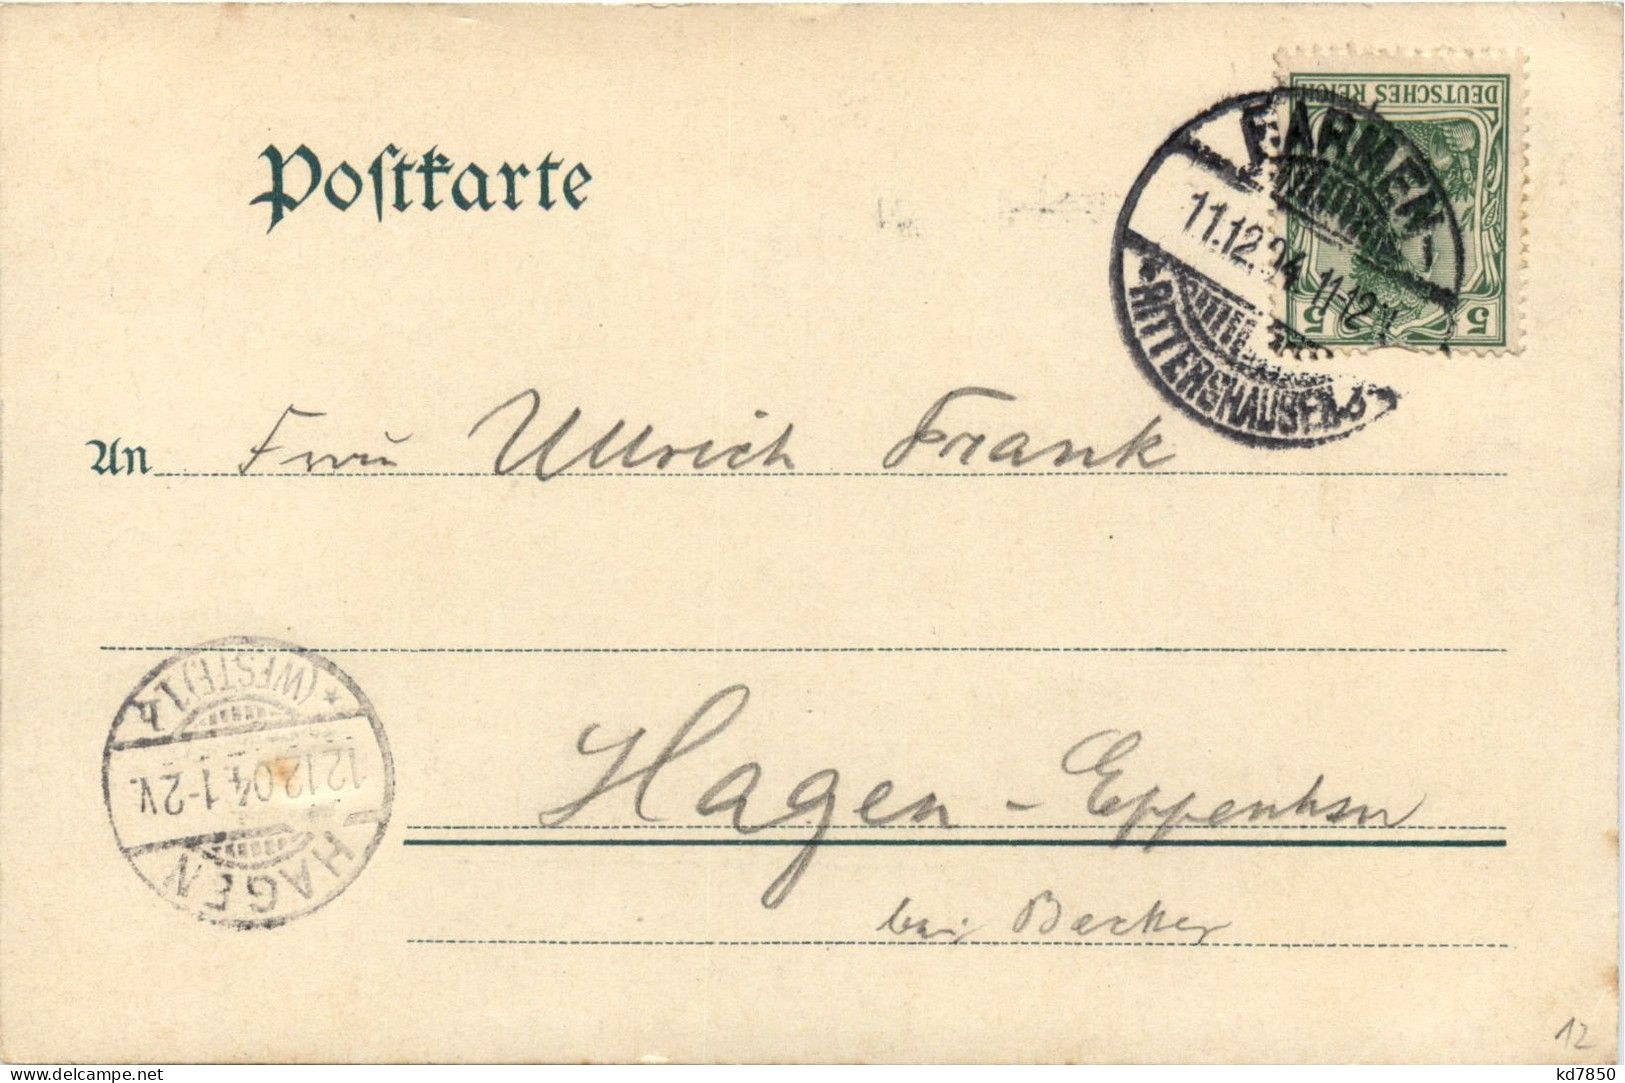 Postkarte
DEUTSCHES REICH
5 5
BARMEN-
11.12.04 11-12V.
* RITTERSHAUSEN
An Frau Ullrich Frank
* (WESTF.) 1
12.12.04. 1-2V.
HAGEN
Hagen - Eppenhsn
bei Becker
12
delcampe.net
kd7850